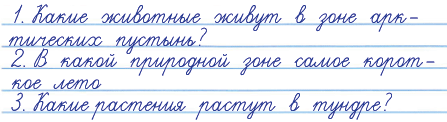 1. Какие животные живут в зоне арк-
тических пустынь?
2. В какой природной зоне самое корот-
кое лето
3. Какие растения растут в тундре?